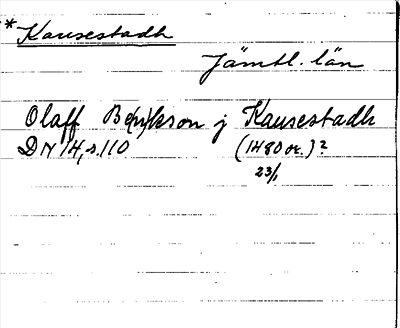 *Kausestadh
Jämtl. län
Olaff Be(n)kson j Kausestadh
DN 14, s. 110 (1480 or.)?
23/1